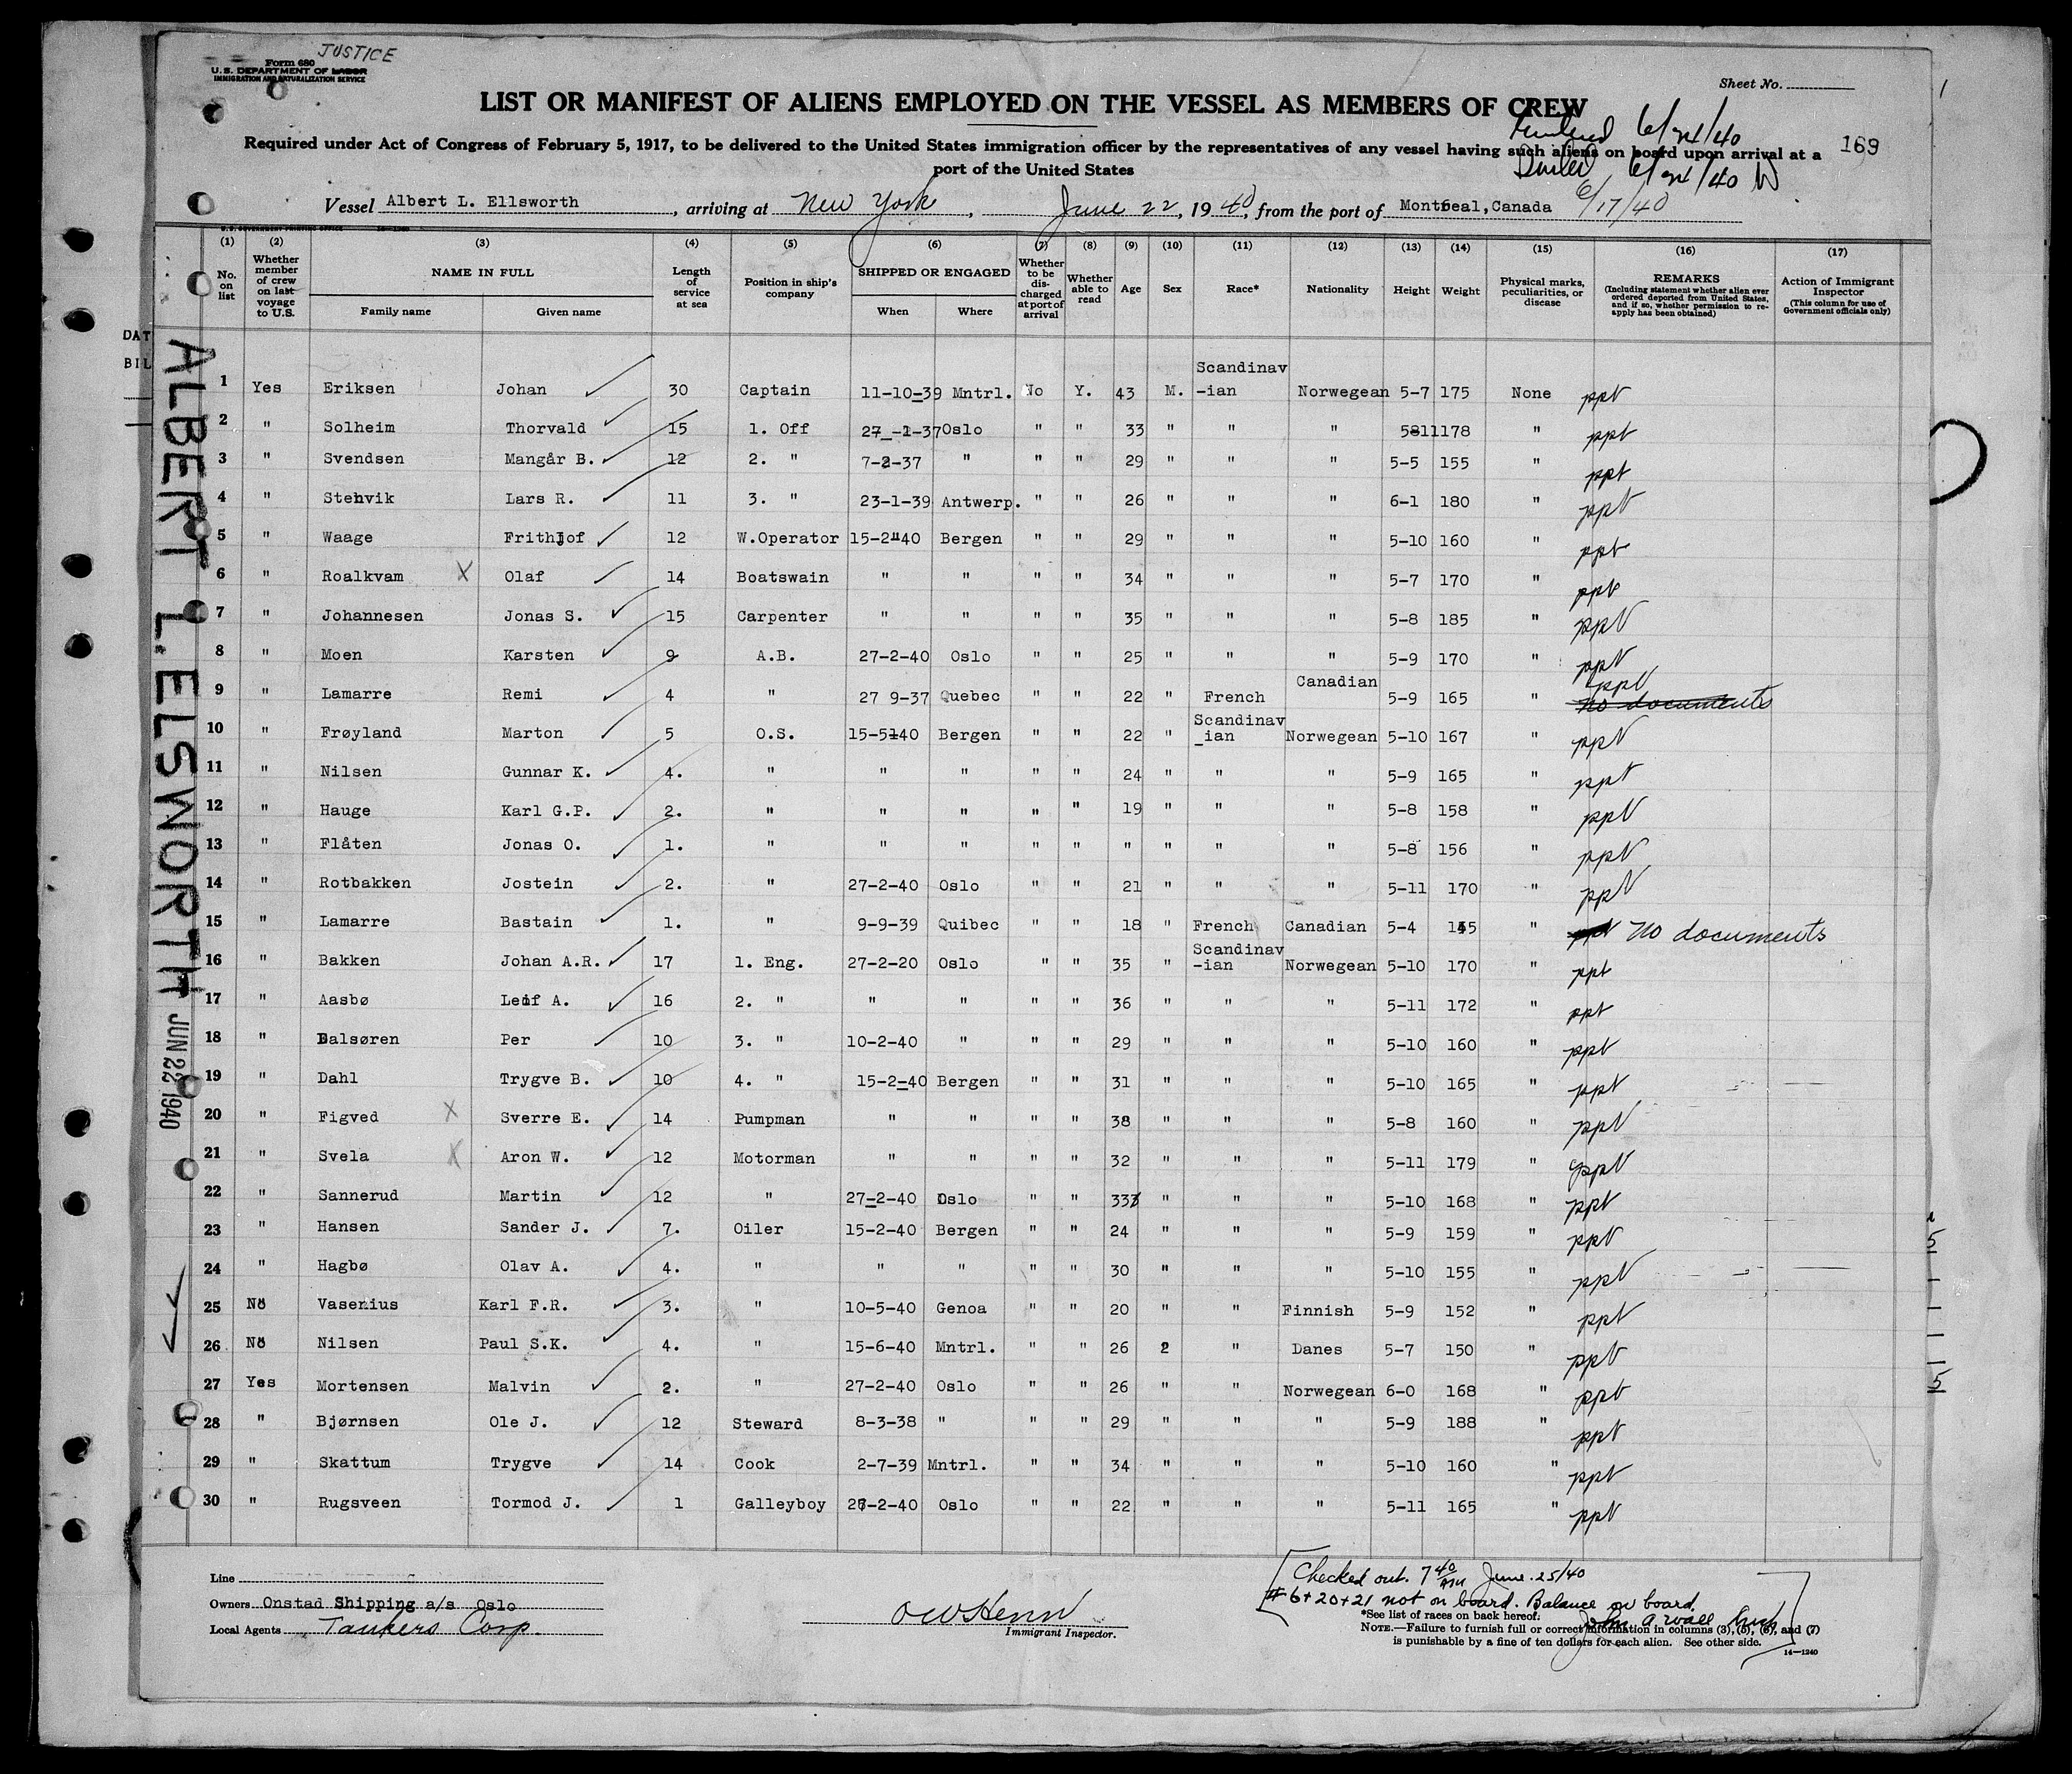 JUSTICE
Form 680
U.S. DEPARTMENT OF LABOR
IMMIGRATION AND NATURALIZATION SERVICE
Sheet No.
LIST OR MANIFEST OF ALIENS EMPLOYED ON THE VESSEL AS MEMBERS OF CREW
6/24/40
Required under Act of Congress of February 5, 1917, to be delivered to the United States immigration officer by the representatives of any vessel having such aliens on board upon arrival at a
port of the United States
169
6/24/40
Vessel Albert L. Ellsworth, arriving at New York, June 22, 1940, from the port of Montreal, Canada 6/17/40
(1) (2) (3) (4) (5) (6) (7) (8) (9) (10) (11) (12) (13) (14) (15) (16) (17)
No. on list
Whether member of crew on last voyage to U.S.
NAME IN FULL
Family name
Given name
Length of service at sea
Position in ship's company
SHIPPED OR ENGAGED
When
Where
Whether to be discharged at port of arrival
Whether able to read
Age
Sex
Race*
Nationality
Height
Weight
Physical marks, peculiarities, or disease
REMARKS
(Including statement whether alien ever ordered deported from United States, and if so, whether permission to reapply has been obtained)
Action of Immigrant Inspector
(This column for use of Government officials only)
DAT
BIL
ALBERT L. ELSWORTH JUN 22 1940
1 Yes Eriksen Johan 30 Captain 11-10-39 Mntrl. No Y. 43 M. Scandinav-ian Norwegean 5-7 175 None ppt
2 " Solheim Thorvald 15 1. Off 27-1-37 Oslo " " 33 " " " 5811 178 " ppt
3 " Svendsen Mangår B. 12 2. " 7-2-37 " " " 29 " " " 5-5 155 " ppt
4 " Stenvik Lars R. 11 3. " 23-1-39 Antwerp. " " 26 " " " 6-1 180 " ppt
5 " Waage Frithjof 12 W.Operator 15-2-40 Bergen " " 29 " " " 5-10 160 " ppt
6 " Roalkvam X Olaf 14 Boatswain " " " " 34 " " " 5-7 170 " ppt
7 " Johannesen Jonas S. 15 Carpenter " " " " 35 " " " 5-8 185 " ppt
8 " Moen Karsten 9 A.B. 27-2-40 Oslo " " 25 " " " 5-9 170 " ppt
9 " Lamarre Remi 4 " 27 9-37 Quebec " " 22 " French Canadian 5-9 165 " ppt No documents
10 " Frøyland Marton 5 O.S. 15-5-40 Bergen " " 22 " Scandinav_ian Norwegean 5-10 167 " ppt
11 " Nilsen Gunnar K. 4. " " " " " 24 " " " 5-9 165 " ppt
12 " Hauge Karl G.P. 2. " " " " " 19 " " " 5-8 158 " ppt
13 " Flåten Jonas O. 1. " " " " " " " " " 5-8 156 " ppt
14 " Rotbakken Jostein 2. " 27-2-40 Oslo " " 21 " " " 5-11 170 " ppt
15 " Lamarre Bastain 1. " 9-9-39 Quibec " " 18 " French Canadian 5-4 145 " ppt No documents
16 " Bakken Johan A.R. 17 1. Eng. 27-2-20 Oslo " " 35 " Scandinav-ian Norwegean 5-10 170 " ppt
17 " Aasbø Leif A. 16 2. " " " " " 36 " " " 5-11 172 " ppt
18 " Dalsøren Per 10 3. " 10-2-40 " " " 29 " " " 5-10 160 " ppt
19 " Dahl Trygve B. 10 4. " 15-2-40 Bergen " " 31 " " " 5-10 165 " ppt
20 " Figved X Sverre E. 14 Pumpman " " " " 38 " " " 5-8 160 " ppt
21 " Svela X Aron W. 12 Motorman " " " " 32 " " " 5-11 179 " ppt
22 " Sannerud Martin 12 " 27-2-40 Oslo " " 33 " " " 5-10 168 " ppt
23 " Hansen Sander J. 7. Oiler 15-2-40 Bergen " " 24 " " " 5-9 159 " ppt
24 " Hagbø Olav A. 4. " " " " " 30 " " " 5-10 155 " ppt
25 No Vasenius Karl F.R. 3. " 10-5-40 Genoa " " 20 " " Finnish 5-9 152 " ppt
26 No Nilsen Paul S.K. 4. " 15-6-40 Mntrl. " " 26 " " Danes 5-7 150 " ppt
27 Yes Mortensen Malvin 2. " 27-2-40 Oslo " " 26 " " Norwegean 6-0 168 " ppt
28 " Bjørnsen Ole J. 12 Steward 8-3-38 " " " 29 " " " 5-9 188 " ppt
29 " Skattum Trygve 14 Cook 2-7-39 Mntrl. " " 34 " " " 5-10 160 " ppt
30 " Rugsveen Tormod J. 1 Galleyboy 27-2-40 Oslo " " 22 " " " 5-11 165 " ppt
Line
Owners Onstad Shipping a/s Oslo
Local Agents Tankers Corp.
Immigrant Inspector.
Checked out. 7 40 AM June. 25/40
# 6+20+21 not on board. Balance on board.
John A Wall
*See list of races on back hereof.
NOTE.—Failure to furnish full or correct information in columns (3), (5), (6), and (7)
is punishable by a fine of ten dollars for each alien. See other side.
14—1240